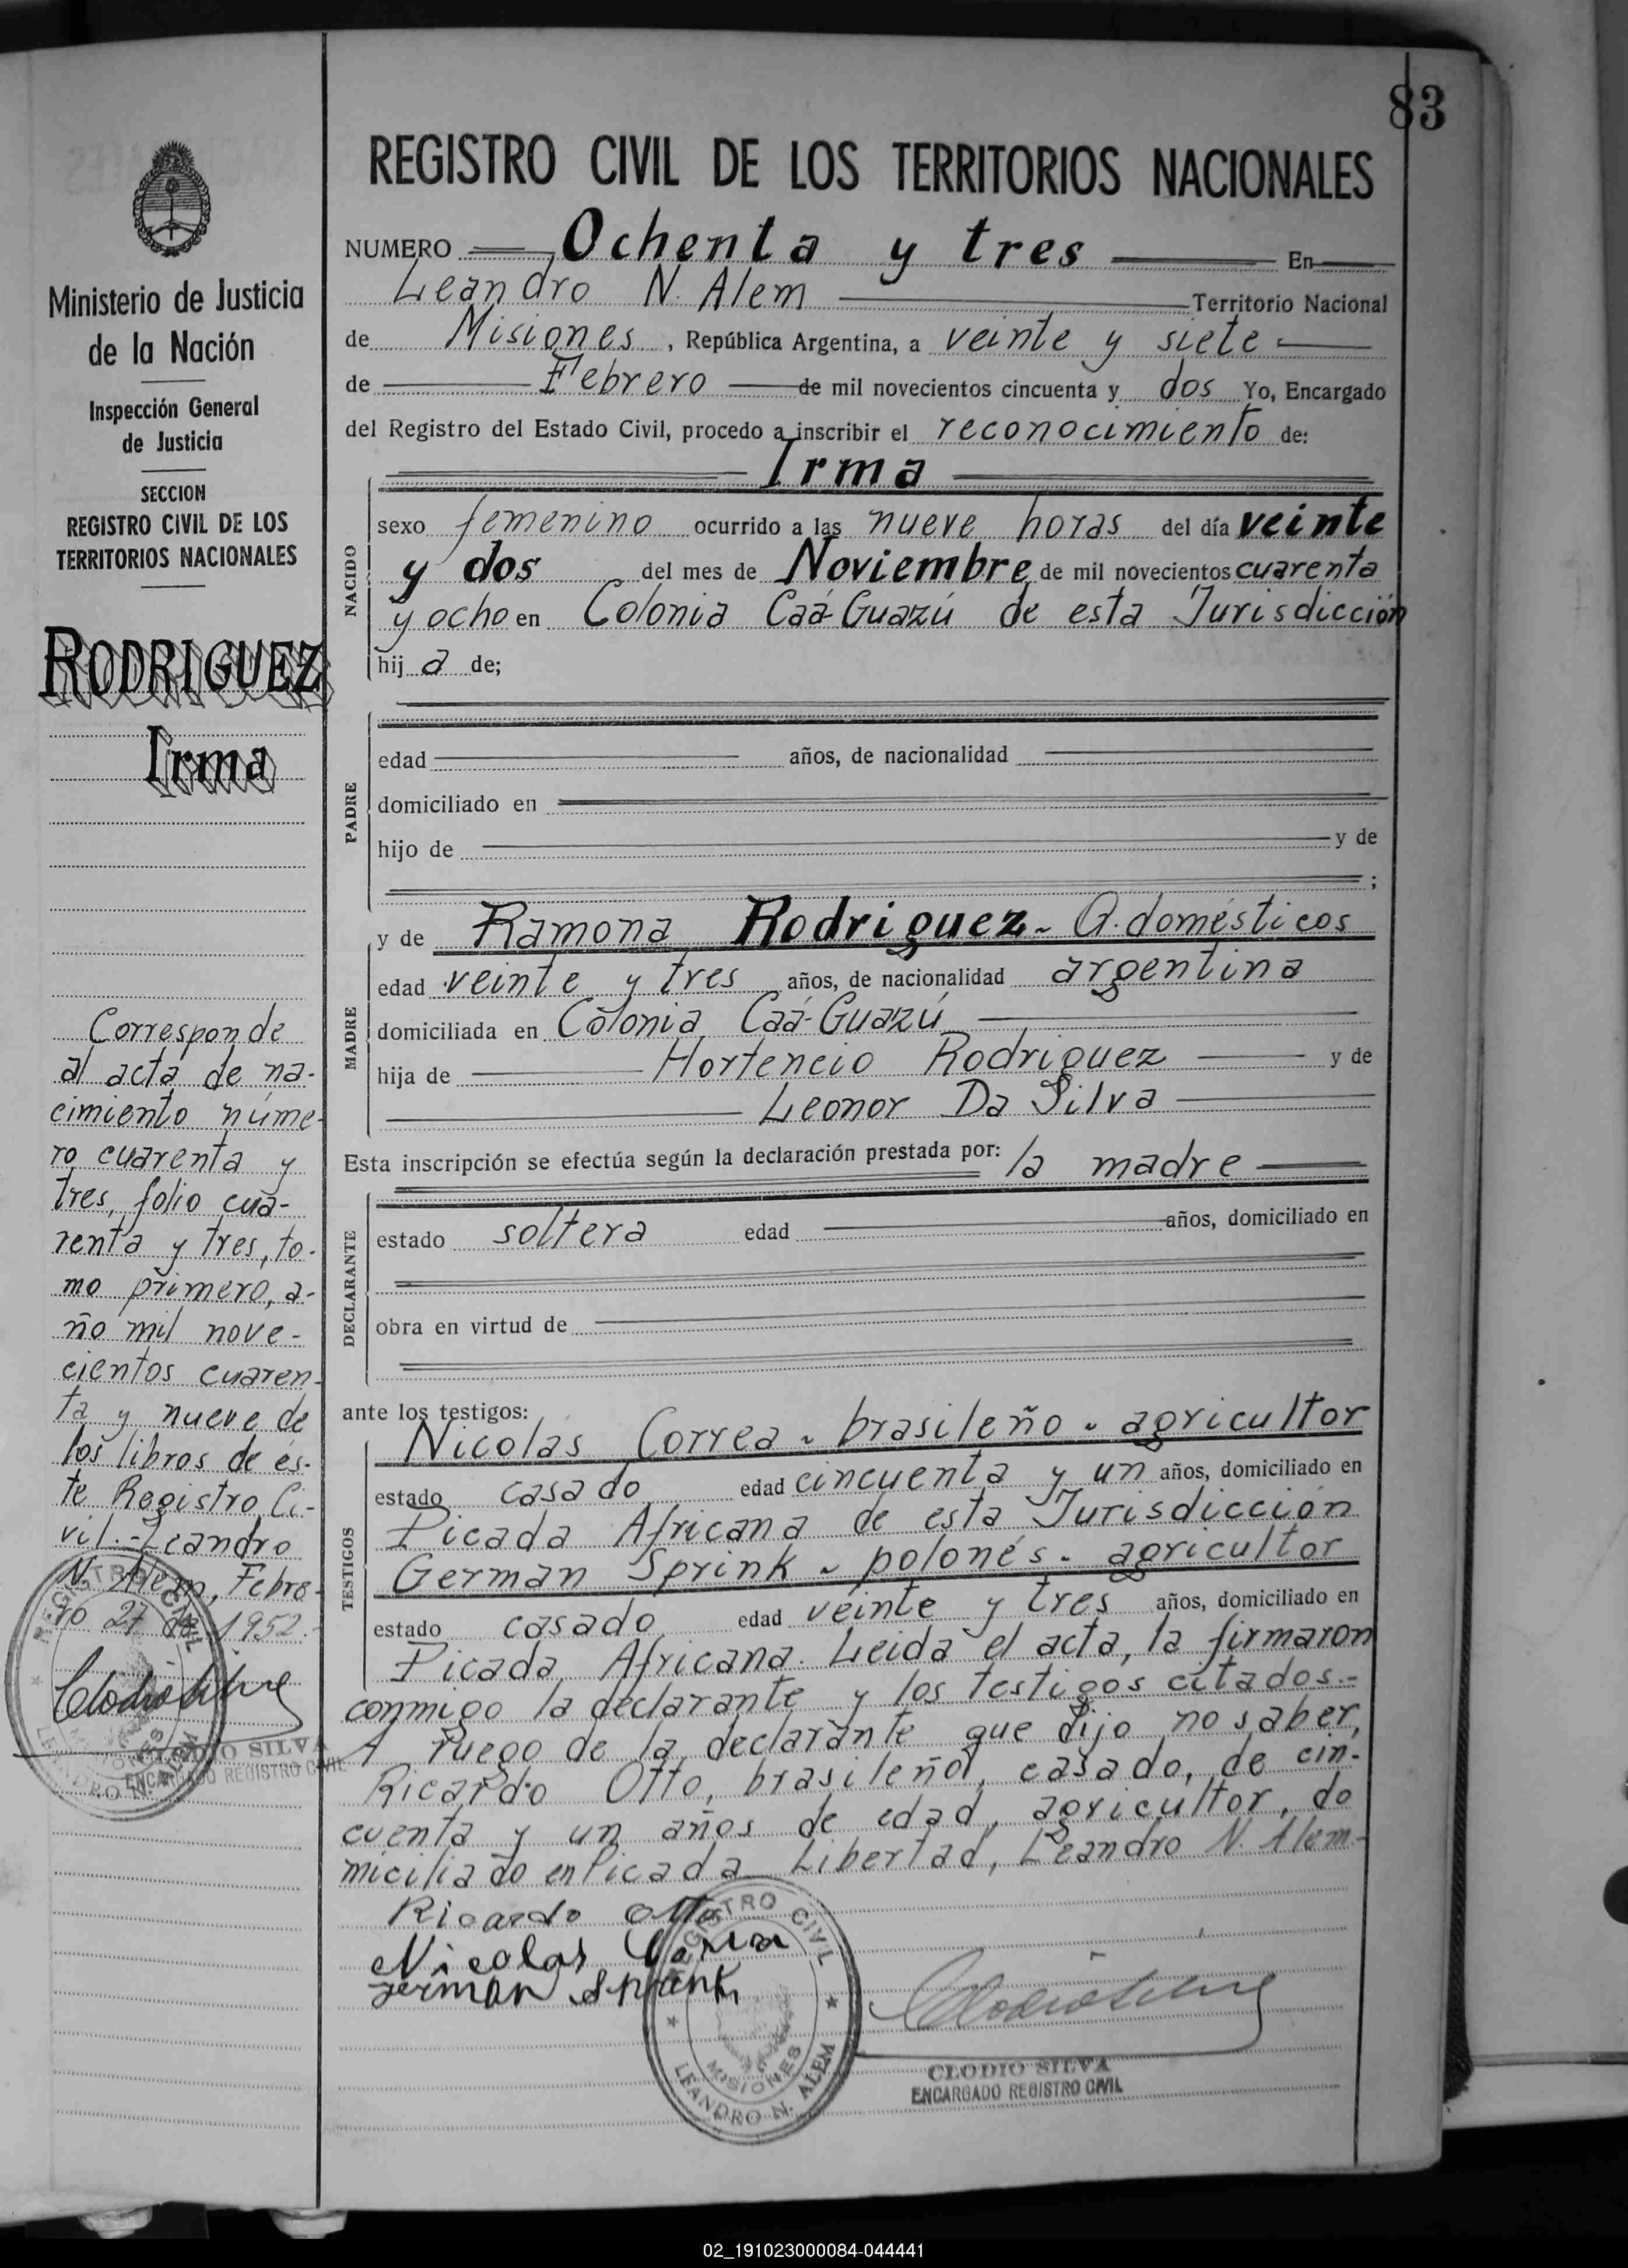 83
Ministerio de Justicia
de la Nación
Inspección General
de Justicia
SECCION
REGISTRO CIVIL DE LOS
TERRITORIOS NACIONALES
RODRIGUEZ
Irma
Corresponde
al acta de na-
cimiento núme-
ro cuarenta y
tres, folio cua-
renta y tres, to-
mo primero, a-
ño mil nove-
cientos cuaren-
ta y nueve de
los libros de és-
te Registro Ci-
vil.- Leandro
N. Alem, Febre-
ro 27 de 1952.-
REGISTRO CIVIL
MISIONES
LEANDRO N. ALEM
CLODIO SILVA
ENCARGADO REGISTRO CIVIL
REGISTRO CIVIL DE LOS TERRITORIOS NACIONALES
NUMERO Ochenta y tres En
Leandro N. Alem Territorio Nacional
de Misiones, República Argentina, a veinte y siete
de Febrero de mil novecientos cincuenta y dos Yo, Encargado
del Registro del Estado Civil, procedo a inscribir el reconocimiento de:
Irma
NACIDO
sexo femenino ocurrido a las nueve horas del día veinte
y dos del mes de Noviembre de mil novecientos cuarenta
y ocho en Colonia Caá-Guazú de esta Jurisdicción
hij a de;
PADRE
edad años, de nacionalidad
domiciliado en
hijo de y de
;
MADRE
y de Ramona Rodriguez - Q. domésticos
edad veinte y tres años, de nacionalidad argentina
domiciliada en Colonia Caá-Guazú
hija de Hortencio Rodriguez y de
Leonor Da Silva
Esta inscripción se efectúa según la declaración prestada por: la madre
DECLARANTE
estado soltera edad años, domiciliado en
obra en virtud de
ante los testigos:
TESTIGOS
Nicolás Correa - brasileño - agricultor
estado casado edad cincuenta y un años, domiciliado en
Picada Africana de esta Jurisdicción
German Sprink - polonés - agricultor
estado casado edad veinte y tres años, domiciliado en
Picada Africana. Leida el acta, la firmaron
conmigo la declarante y los testigos citados.-
A ruego de la declarante que dijo no saber,
Ricardo Otto, brasileño, casado, de cin-
cuenta y un años de edad, agricultor, do
miciliado en Picada Libertad, Leandro N. Alem-
Ricardo Otto
Nicolas Correa
German Sprink
REGISTRO CIVIL
MISIONES
LEANDRO N. ALEM
CLODIO SILVA
ENCARGADO REGISTRO CIVIL
02_191023000084-044441